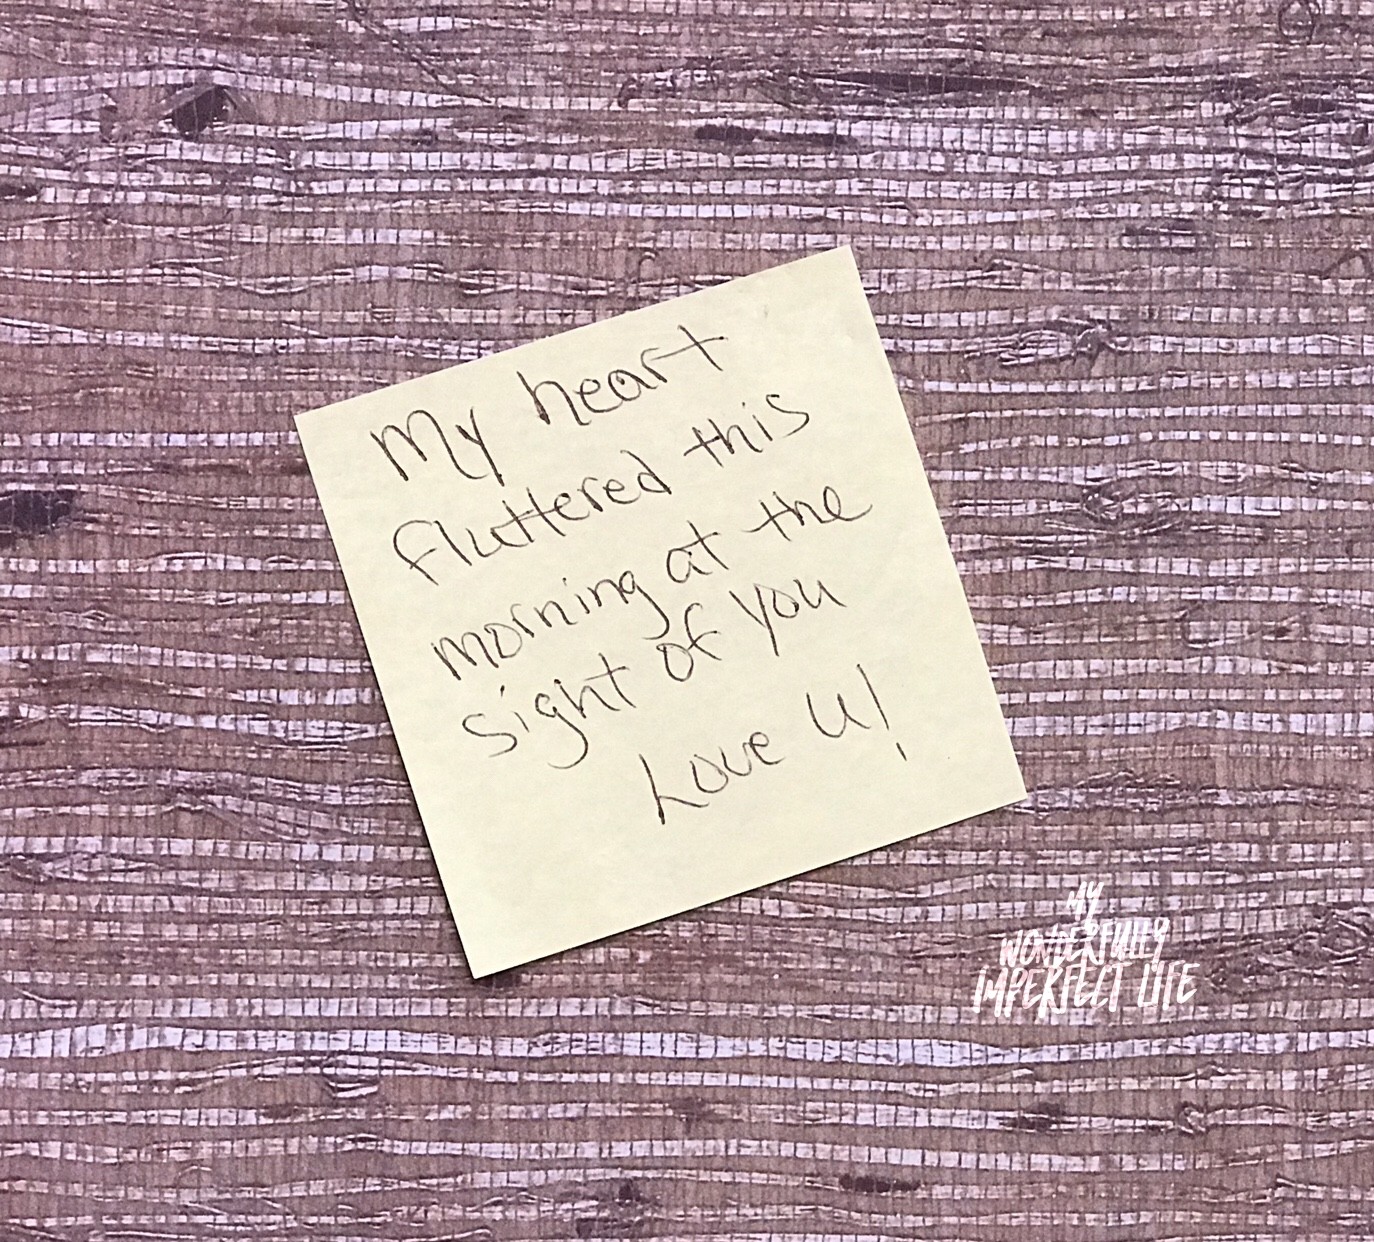 My heart
fluttered this
morning at the
sight of you
Love u!
MY
WONDERFULLY
IMPERFECT LIFE